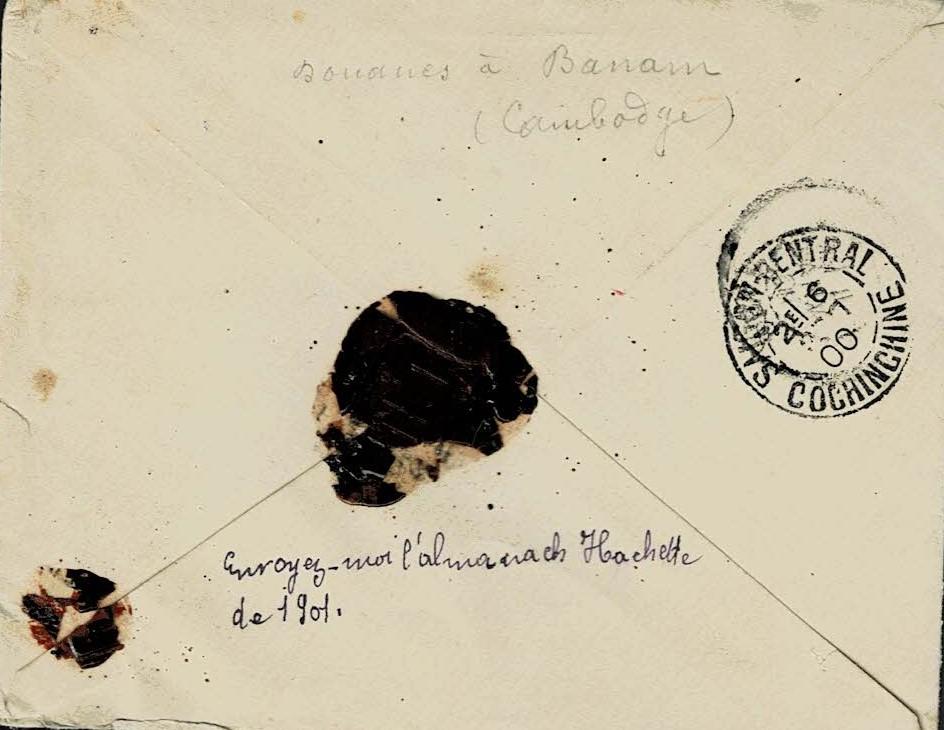 Douanes à Banam
(Cambodge)
SAIGON CENTRAL
6
00
COCHINCHINE
Envoyez-moi l'almanach Hachette
de 1901.